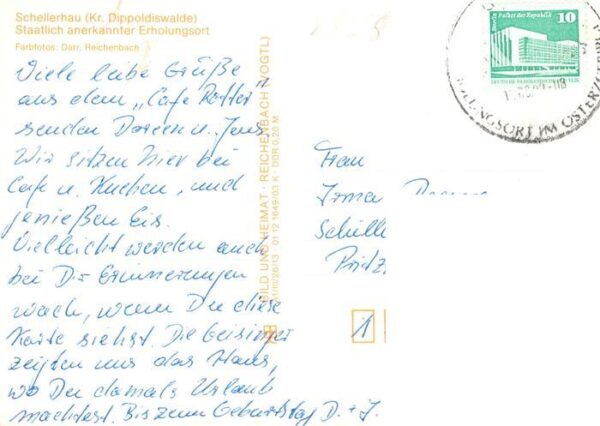 Schellerhau (Kr. Dippoldiswalde)
Staatlich anerkannter Erholungsort
Farbfotos: Darr, Reichenbach
Viele liebe Grüße
aus dem „Cafe Rotter"
senden Doreen u. Jens.
Wir sitzen hier bei
Cafe u. Kuchen, und
jenießen Eis.
Vielleicht werden auch
bei Dir Erinnerungen
wach, wenn Du diese
Karte siehst. Die Geisinger
zeigten uns das Haus,
wo Du damals Urlaub
machtest. Bis zum Geburtstag D. + J.
BILD UND HEIMAT · REICHENBACH (VOGTL)
01 12 1649/03 K · DDR 0,20 M
Berlin Palast der Republik
10
DEUTSCHE DEMOKRATISCHE REPUBLIK
IM OSTERZGEB
Frau
Irma
Schelle
Pritz
1